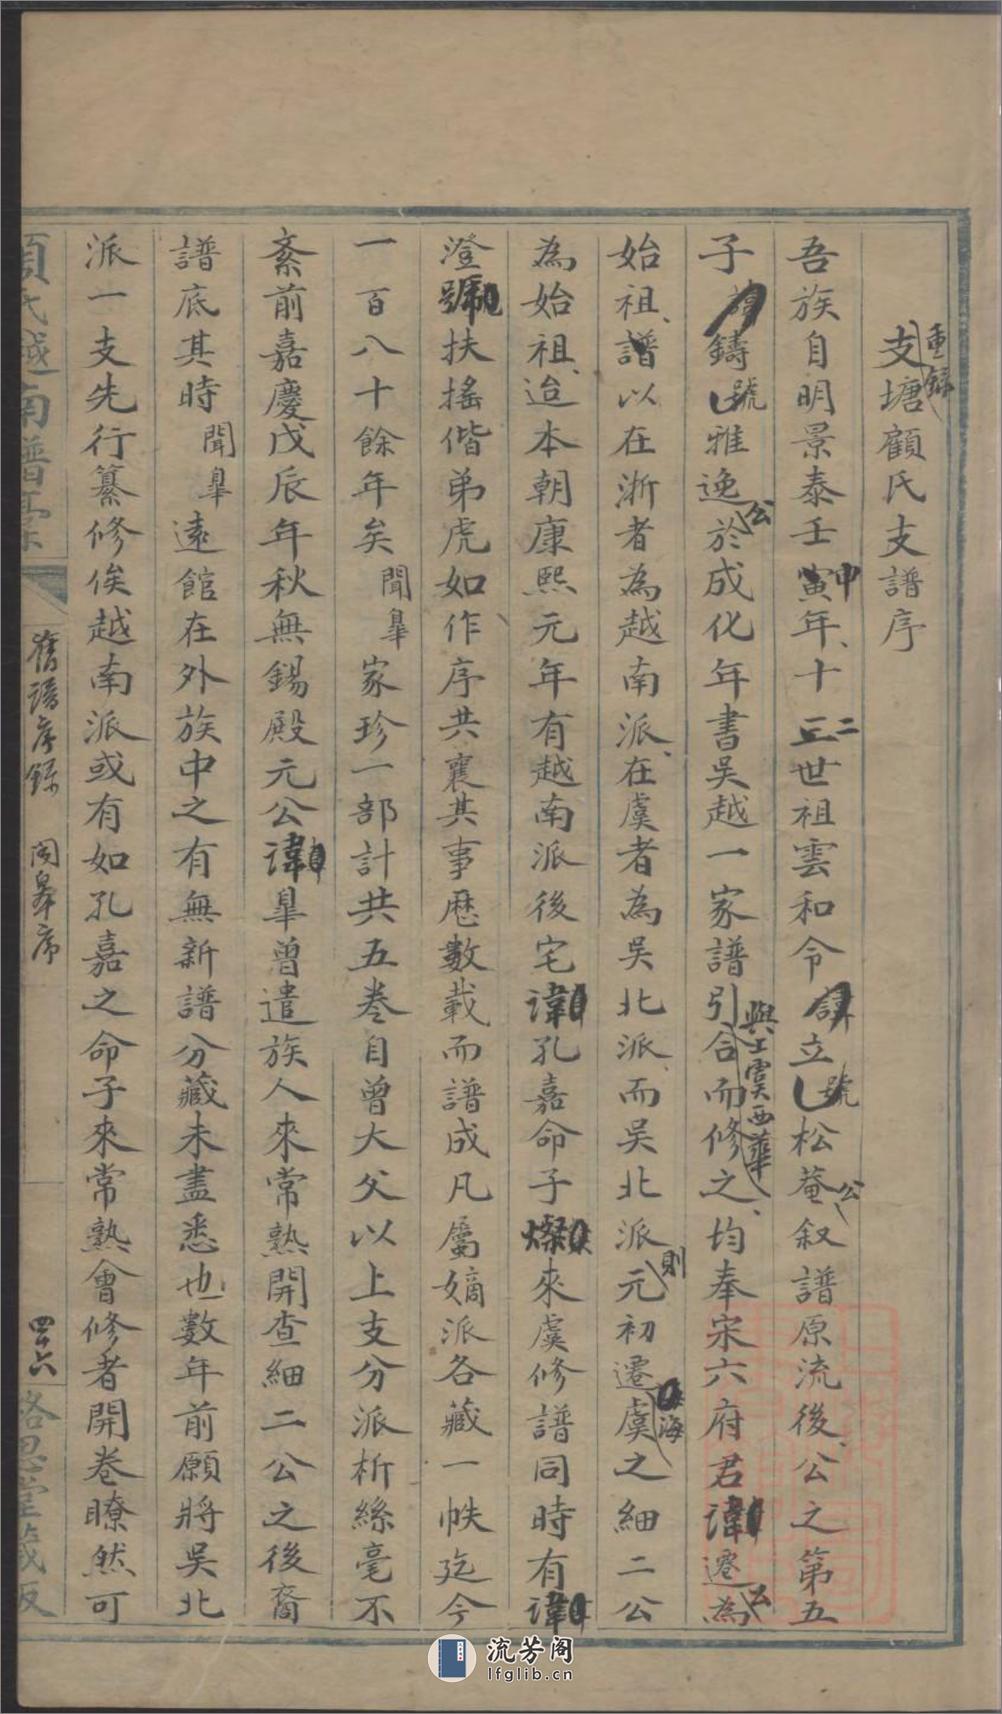 重錄
支塘顧氏支譜序
吾族自明景泰壬寅申年十三二世祖雲和令諱立號松菴公叙譜原流後公之第五
子諱鑄號雅逸公於成化年書吳越一家譜引與工雲西華合而修之均奉宋六府君諱遷公為
始祖譜以在浙者為越南派在虞者為吳北派而吳北派則元初遷海虞之細二公
為始祖迨本朝康熙元年有越南派後宅諱孔嘉命子燦來虞修譜同時有諱
澄號扶搖偕弟虎如作序共襄其事歷數載而譜成凡屬嫡派各藏一帙迄今
一百八十餘年矣聞臯家珍一部計共五卷自曾大父以上支分派析絲毫不
紊前嘉慶戊辰年秋無錫殿元公諱臯曾遣族人來常熟開查細二公之後裔
譜底其時聞臯遠館在外族中之有無新譜分藏未盡悉也數年前願將吳北
派一支先行纂修俟越南派或有如孔嘉之命子來常熟會修者開卷瞭然可
顧氏越南譜
舊譜序錄 聞臯序 四十六
流芳阁
lfglib.cn